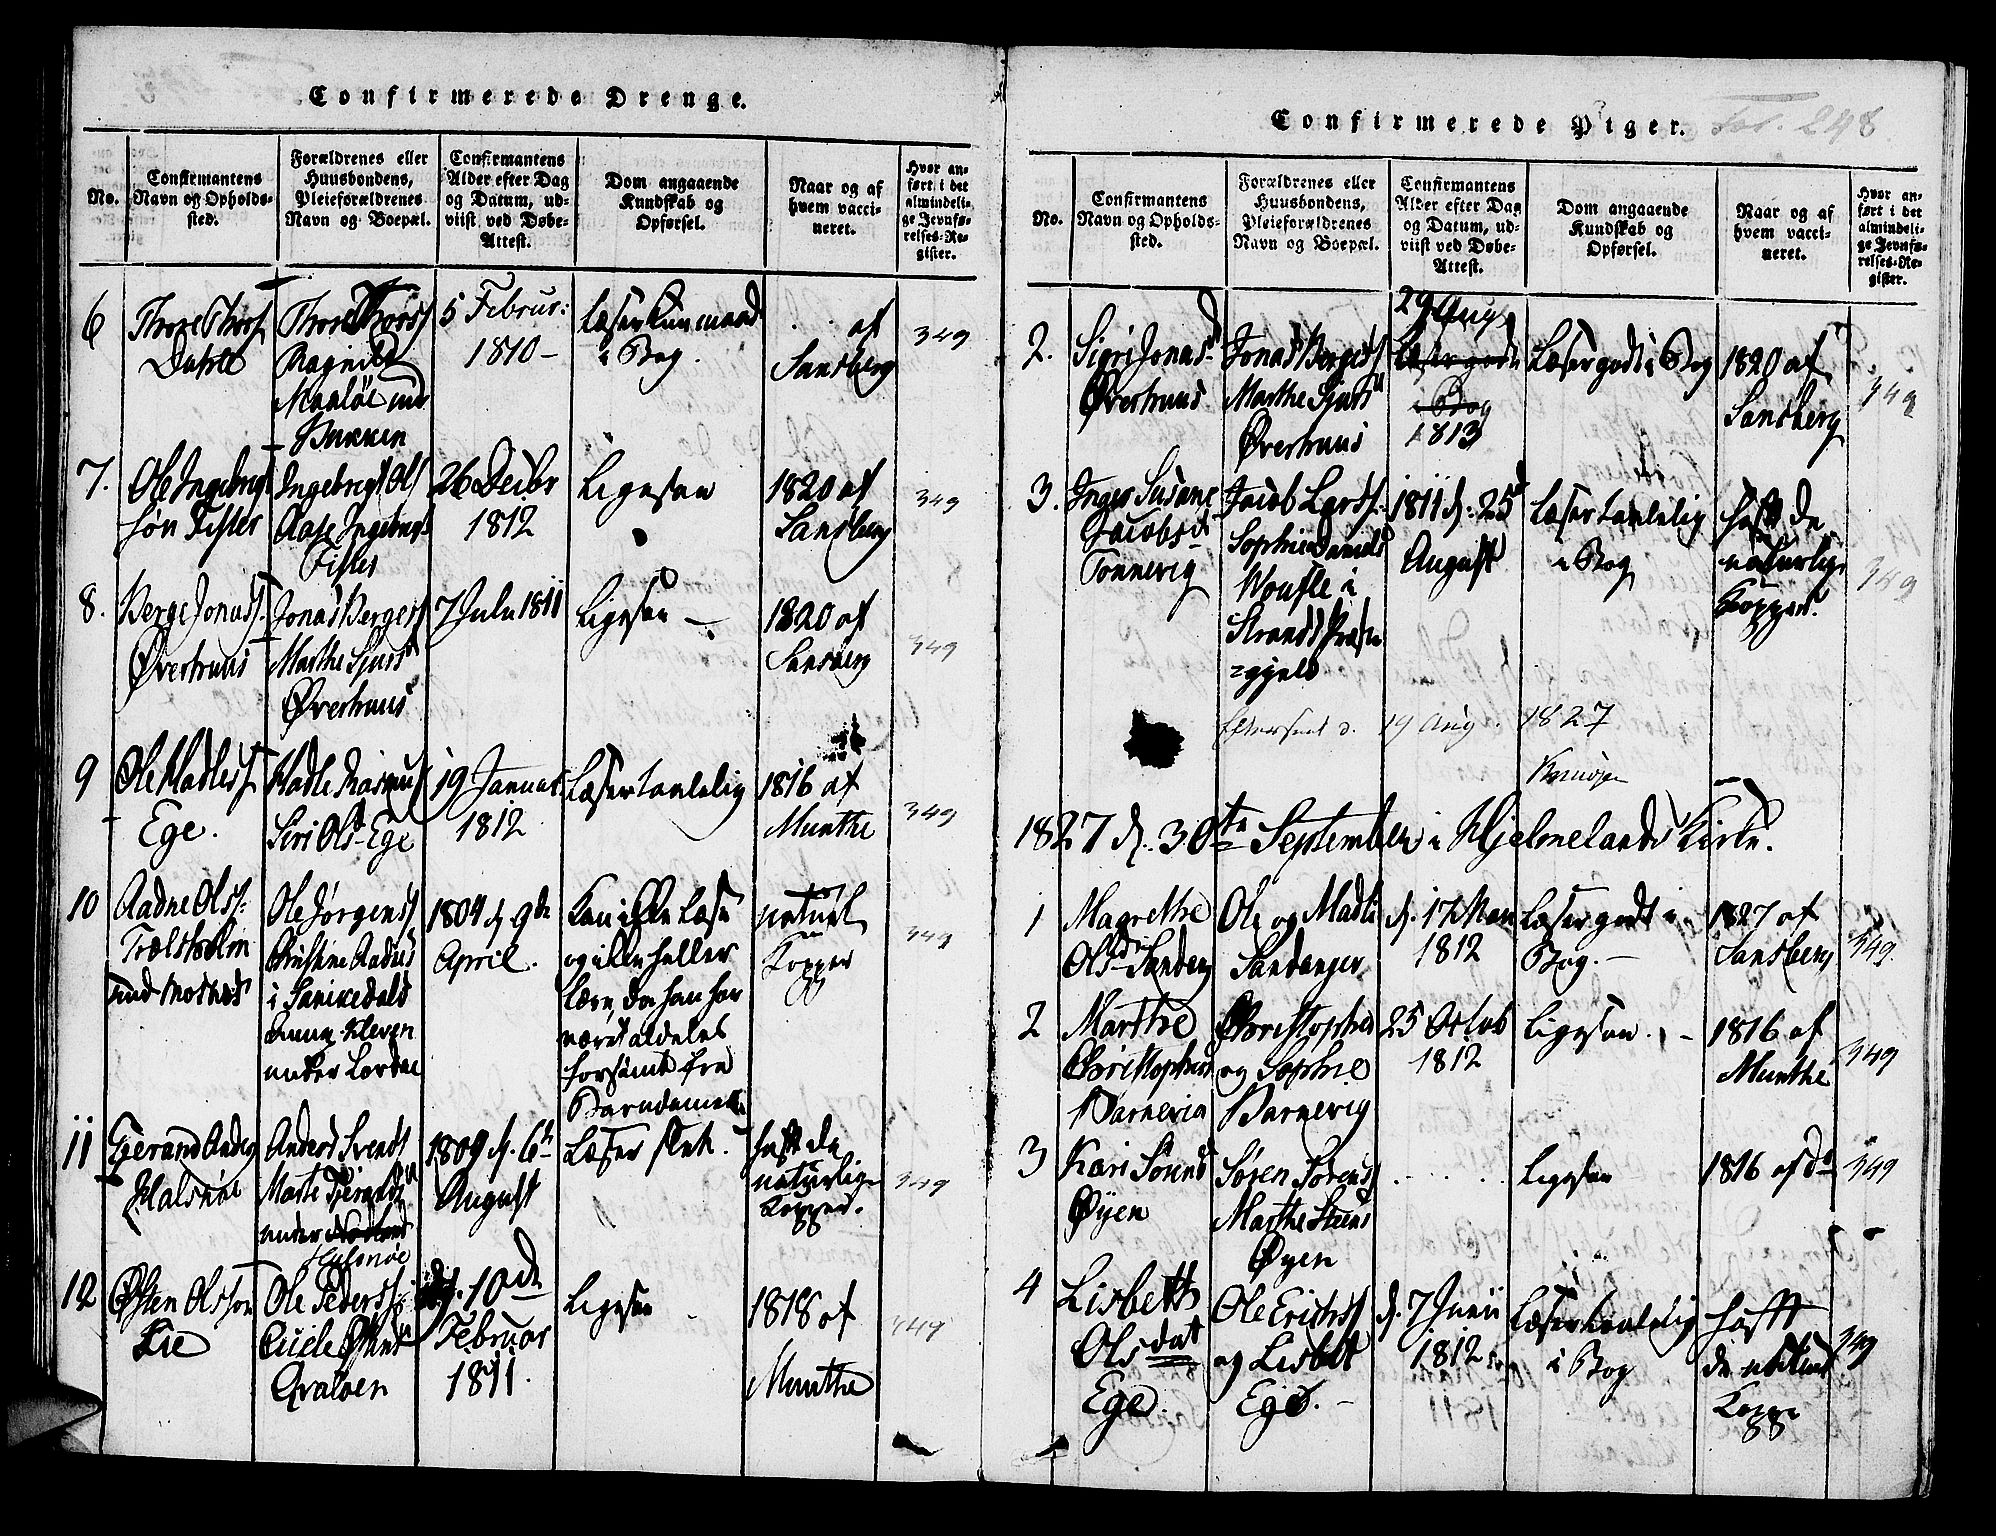 Confirmerede Drenge.
No.
Confirmantens
Navn og Opholds-
sted.
Forældrenes eller
Huusbondens,
Pleieforældrenes
Navn og Boepæl.
Confirmantens
Alder efter Dag
og Datum, ud-
viist ved Døbe-
Attest.
Dom angaaende
Kundskab og
Opførsel.
Naar og af
hvem vacci-
neret.
Hvor an-
ført i det
almindeli-
ge Jevnfø-
relses-Re-
gister.
6
Thore Thors
Dahle
Thore Thors
Ragnild
Maaløe und
Bakken
5 Februr:
1810 -
Læser kun maad
i Bog.
af
Sandberg
349
7.
Ole Ingebrigt
søn Fister
Ingebrigt Ols
Aase Ingebrigts
Fister
26 Decbr
1812
Ligesaa
1820 af
Sandberg
349
8.
Berge Jonas.
Øvertuns
Jonas Berges
Marthe Sjurs
Øvertuns
7 Julii 1811
Ligesaa -
1820 af
Sandberg
349
9
Ole Madless
Ege.
Madle Rasmus
Siri Ols Ege
19 Januar
1812
Læser taalelig
1816 af
Munthe
349
10
Aadne Olss:
Trælsholm
und Mosnes
Ole Jørgens
Christine Aadnes
i
under
1804 d. 9de
April.
Kan ikke læse
og ikke heller
lære, da han har
været aldeles
forsømt fra
Barndommen
naturl
Kopper
349
11
Gerand Anders
Halsnøe
Anders Svends
Marte
under
Halsnøe
1809 d. 6te
August
Læser slet.
haft de
naturlige
Kopper.
349
12
Østen Olsson
Lie
Ole Peders
d. 10de
Februar
1811.
Ligesaa
1818 af
Munthe
349
Confirmerede Piger.
Fol. 248
No.
Confirmantens
Navn og Opholds-
sted.
Forældrenes eller
Huusbondens,
Pleieforældrenes
Navn og Boepæl.
Confirmantens
Alder efter Dag
og Datum, ud-
viist ved Døbe-
Attest.
Dom angaaende
Kundskab og
Opførsel.
Naar og af
hvem vacci-
neret.
Hvor an-
ført i det
almindeli-
ge Jevnfø-
relses-Re-
gister.
2.
Sigri Jonasd
Øvertuns
Jonas Berges
Marthe Sjurs
Øvertuns
29 Aug
Læser godt
i Bog
1813
Læser godt i Bog
1820 af
Sandberg
349
3.
Inger Susane
Jacobsd
Tønnevig
Jacob Lars
Sophie Daniels
i
Strands Præste
gjeld
1811 d. 25
August
Læser taalelig
i Bog
haft de
naturlige
Kopper.
349
Efterseet d. 19 Aug. 1827
1827 d. 30te September i Hjelmelands Kirke.
1
Magrethe
Olsd Sandanger
Ole og Madli
Sandanger
d. 17 Mai
1812
Læser godt i
Bog. -
1827 af
Sandberg
349.
2
Marthe
Christophersd
Barnevig
Christopher
og Sophie
Barnevig
25 Octob
1812
Ligesaa. -
1816 af
Munthe
349
3
Kari Sørens
Øyen
Søren Sørens
Marthe Steens
Øyen
Ligesaa
1816 af do
349
4
Lisbeth
Olsdat
Ege.
Ole Erichss
og Lisbet
Ege. -
d. 7 Junii
1812
Læser taalelig
i Bog
haft
de naturl
Kopper
349